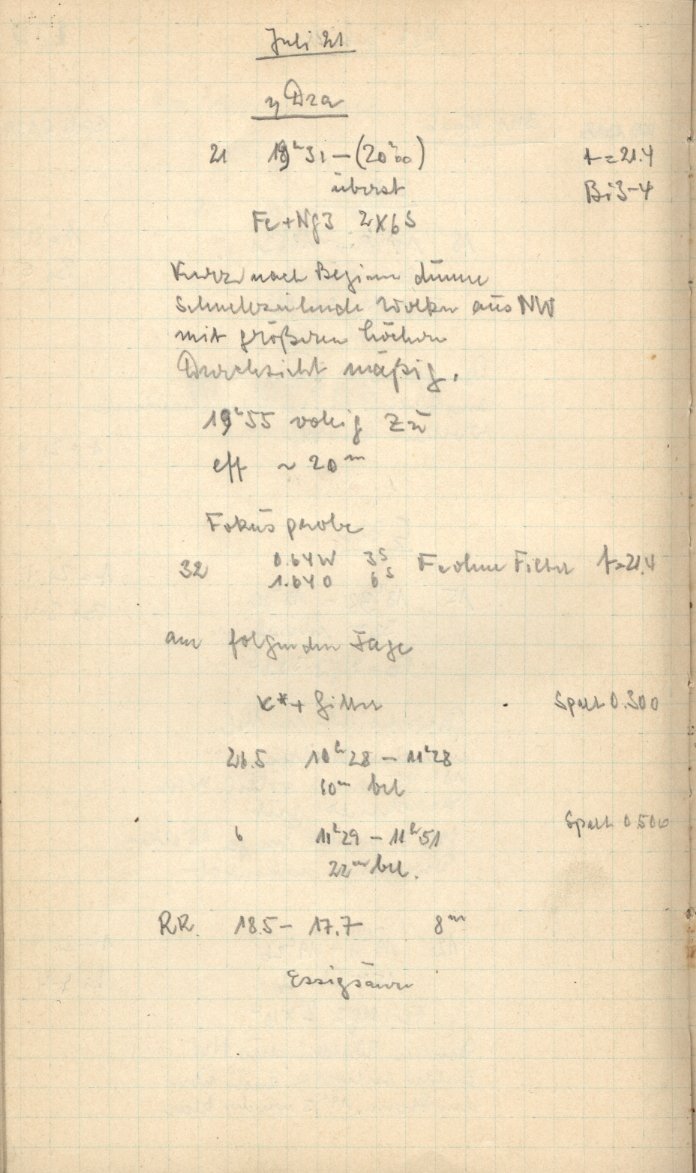 Juli 21
η Dra
21 19ʰ31 – (20ʰ00) t = 21.4
überst Bi 3-4
Fe + Ng3 2×6ˢ
Kurz nach Beginn dünne
schnellziehende Wolken aus NW
mit größeren Löchern
Durchsicht mäßig.
19ʰ55 völlig zu
eff ~ 20ᵐ
Fokusprobe
32 0.64W 3ˢ Fe ohne Filter t=21.4
1.04O 6ˢ
am folgenden Tage
K*+ Gitter Spalt 0.300
26.5 10ʰ28 – 11ʰ28
60ᵐ bel
6 11ʰ29 – 11ʰ51 Spalt 0.500
22ᵐ bel.
RR. 18.5 – 17.7 8ᵐ
Essigsäure